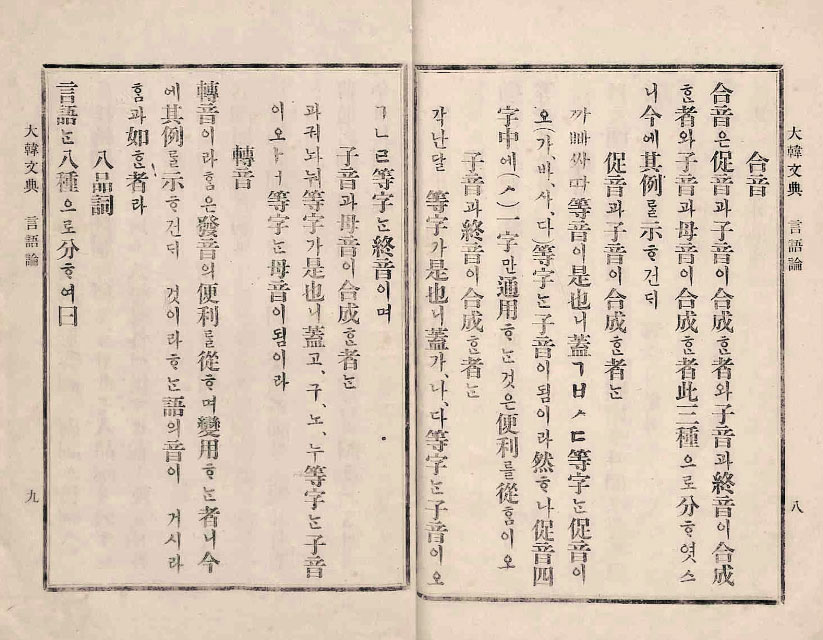 大韓文典 言語論
八
合音
合音은促音과子音이合成ᄒᆞᆫ者와子音과終音이合成
ᄒᆞᆫ者와子音과母音이合成ᄒᆞᆫ者此三種으로分ᄒᆞ엿스
니今에其例를示ᄒᆞ건ᄃᆡ
促音과子音이合成ᄒᆞᆫ者ᄂᆞᆫ
ᄭᅡ ᄲᅡ 싸 ᄯᅡ 等音이是也니蓋ㄱㅂㅅㄷ等字ᄂᆞᆫ促音이
오(가、바、사、다)等字ᄂᆞᆫ子音이됨이라然ᄒᆞ나促音四
字中에(ㅅ)一字만通用ᄒᆞᄂᆞᆫ것은便利를從ᄒᆞᆷ이오
子音과終音이合成ᄒᆞᆫ者ᄂᆞᆫ
각난달 等字가是也니蓋가、나、다等字ᄂᆞᆫ子音이오
ㄱㄴㄹ等字ᄂᆞᆫ終音이며
子音과母音이合成ᄒᆞᆫ者ᄂᆞᆫ
과궈놔눠等字가是也니蓋고、구、노、누等字ᄂᆞᆫ子音
이오ㅏㅓ等字ᄂᆞᆫ母音이됨이라
轉音
轉音이라ᄒᆞᆷ은發音의便利를從ᄒᆞ며變用ᄒᆞᄂᆞᆫ者니今
에其例를示ᄒᆞ건ᄃᆡ 것이라ᄒᆞᄂᆞᆫ語의音이 거시라
ᄒᆞᆷ과如ᄒᆞᆫ者라
八品詞
言語ᄂᆞᆫ八種으로分ᄒᆞ여曰
大韓文典 言語論
九